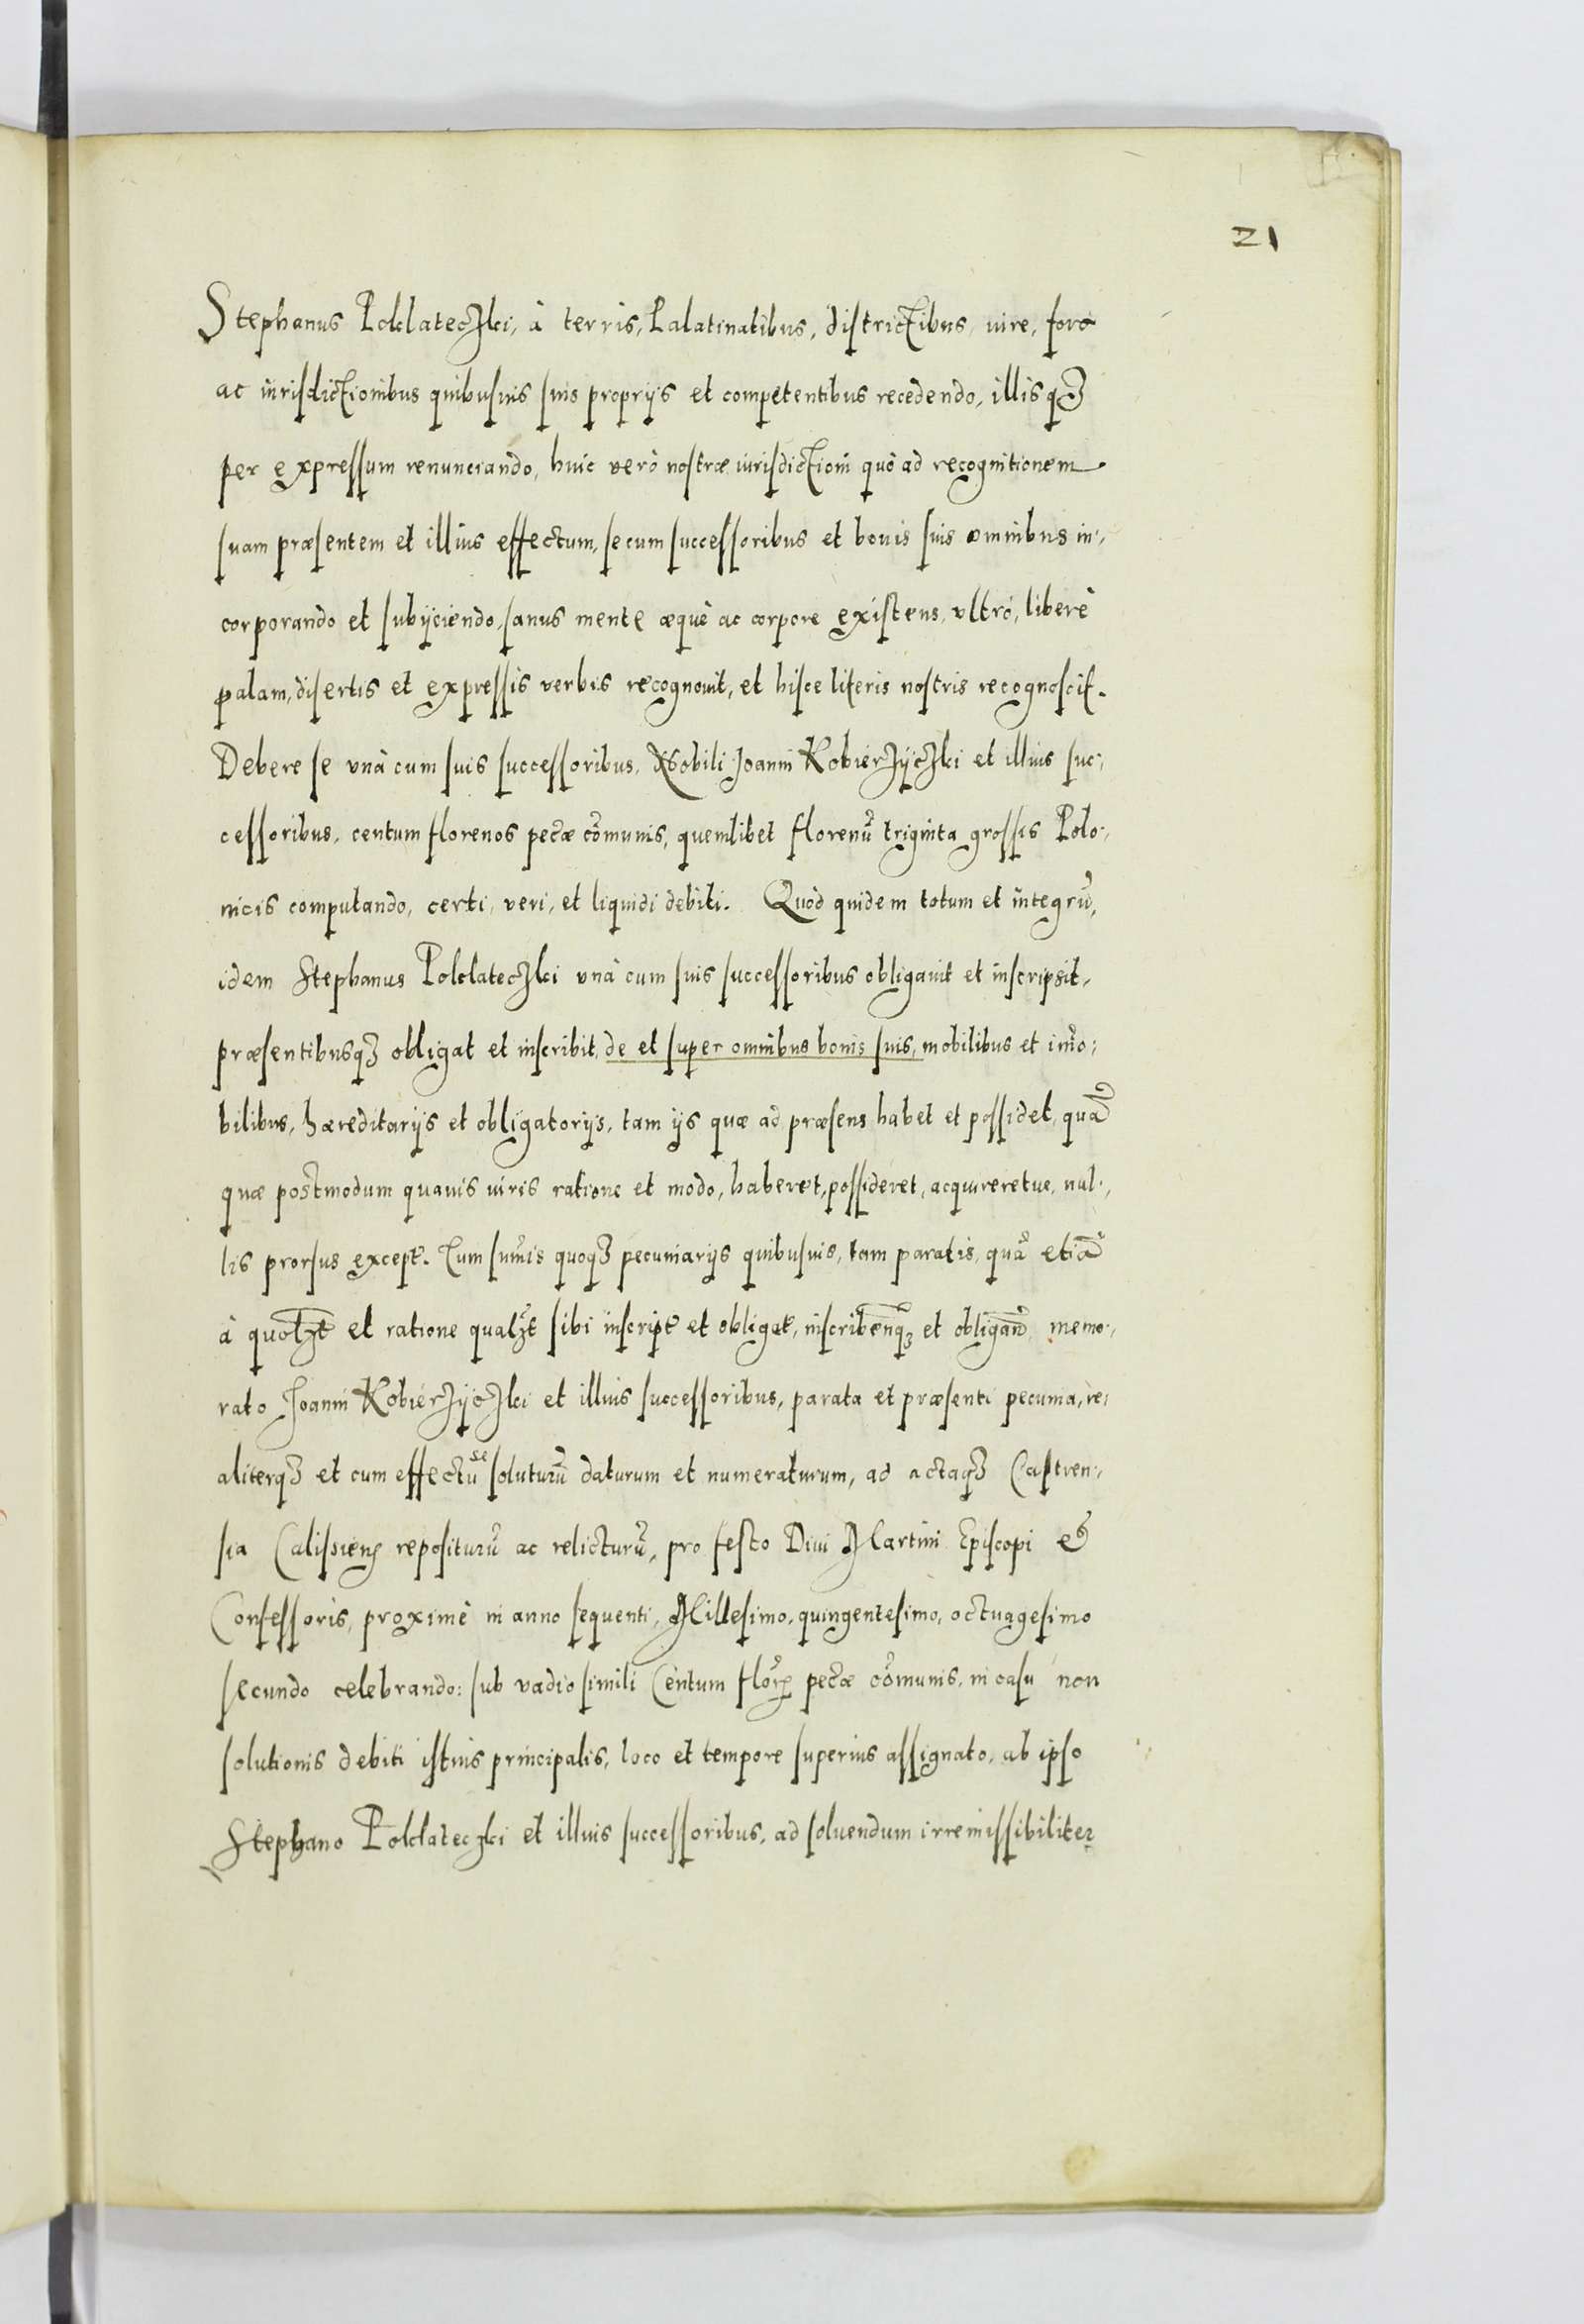 21
Stephanus Poklateczki, à terris, Palatinatibus, districtibus, iure, foro
ac iurisdictionibus quibusuis suis proprijs et competentibus recedendo, illisq3
per expressum renunciando, huic verò nostræ iurisdictioni quò ad recognitionem
suam præsentem et illius effectum, se cum successoribus et bonis suis omnibus in-,
corporando et subijciendo, sanus mente æquè ac corpore existens, vltrò, liberè
palam, disertis et expressis verbis recognouit, et hisce literis nostris recognoscit.
Debere se vnà cum suis successoribus, Nobili Joanni Kobierzijczki et illius suc-,
cessoribus, centum florenos pecæ cõmunis, quemlibet florenũ triginta grossis Polo-,
nicis computando, certi, veri, et liquidi debiti. Quòd quidem totum et integrũ,
idem Stephanus Poklateczki vnà cum suis successoribus obligauit et inscripsit,
præsentibusq3 obligat et inscribit, de et super omnibus bonis suis, mobilibus et im̃o:
bilibus, hæreditarijs et obligatorijs, tam ijs quæ ad præsens habet et possidet, quã
quæ postmodum quauis iuris ratione et modo, haberet, possideret, acquireretue, nul-,
lis prorsus except. Cum sum̃is quoq3 pecuniarijs quibusuis, tam paratis, quã etiã
à quolzt et ratione qualzt sibi inscript et obligat, inscribenq3 et obligand memo-,
rato Joanni Kobierzijczki et illius successoribus, parata et præsenti pecunia, re,
aliterq3 et cum effectu se soluturũ daturum et numeraturum, ad actaq3 Castren-,
sia Calissieñ repositurũ ac relicturũ, pro festo Diui Martini Episcopi et
Confessoris, proximè in anno sequenti, Millesimo, quingentesimo, octuagesimo
secundo celebrando: sub vadio simili Centum flor̃ pecæ cõmunis, in casu non
solutionis debiti istius principalis, loco et tempore superius assignato, ab ipso
Stephano Poklateczki et illius successoribus, ad soluendum irremissibiliter